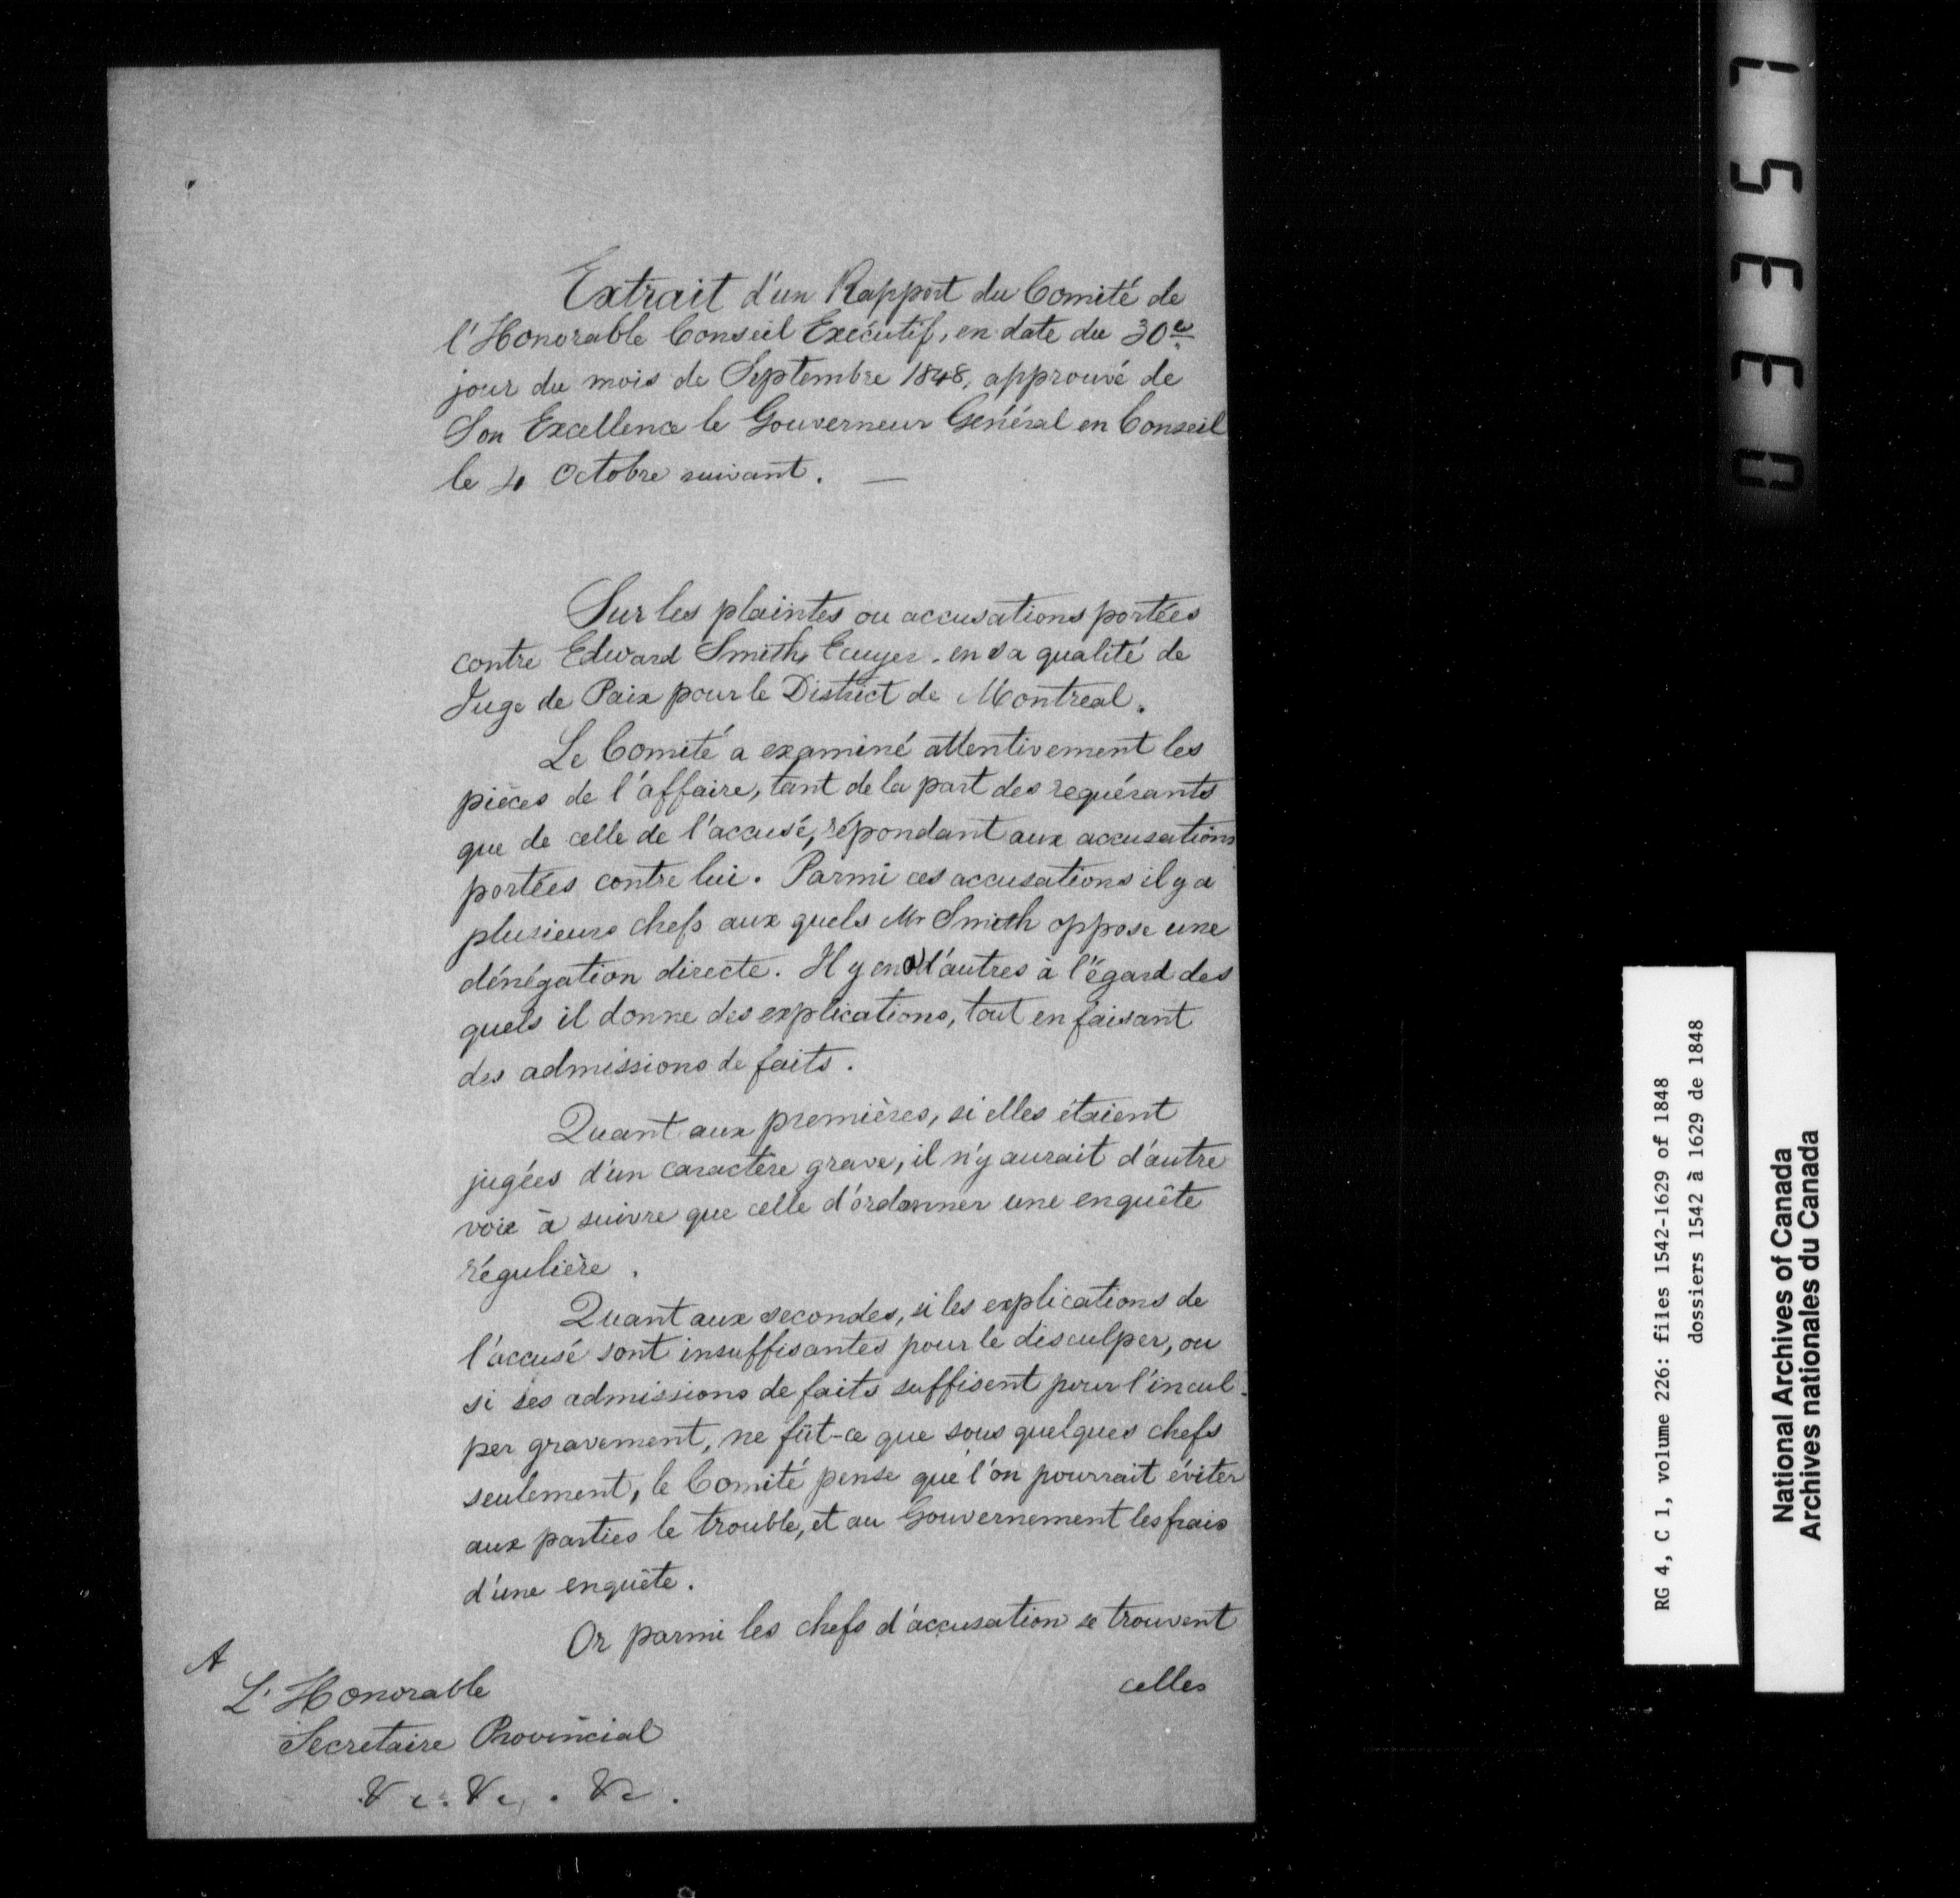 Extrait d'un Rapport du Comité de
l'Honorable Conseil Exécutif, en date du 30e
jour du mois de Septembre 1848, approuvé de
Son Excellence le Gouverneur Général en Conseil
le 4 Octobre suivant. —
Sur les plaintes ou accusations portées
contre Edward Smith, Ecuyer. en sa qualité de
Juge de Paix pour le District de Montreal.
Le Comité a examiné attentivement les
pièces de l'affaire, tant de la part des requérants
que de celle de l'accusé, répondant aux accusations
portées contre lui. Parmi ces accusations il y a
plusieurs chefs aux quels Mr Smith oppose une
dénégation directe. Il y en a d'autres à l'égard des
quels il donne des explications, tout en faisant
des admissions de faits.
Quant aux premières, si elles étaient
jugées d'un caractère grave, il n'y aurait d'autre
voie à suivre que celle d'ordonner une enquête
régulière.
Quant aux secondes, si les explications de
l'accusé sont insuffisantes pour le disculper, ou
si ses admissions de faits suffisent pour l'incul-
per gravement, ne fût-ce que sous quelques chefs
seulement, le Comité pense que l'on pourrait éviter
aux parties le trouble, et au Gouvernement les frais
d'une enquête.
Or parmi les chefs d'accusation se trouvent
celles
A
L'Honorable
Secretaire Provincial
&c. &c. &c.
03357
RG 4, C 1, volume 226: files 1542-1629 of 1848
dossiers 1542 à 1629 de 1848
National Archives of Canada
Archives nationales du Canada